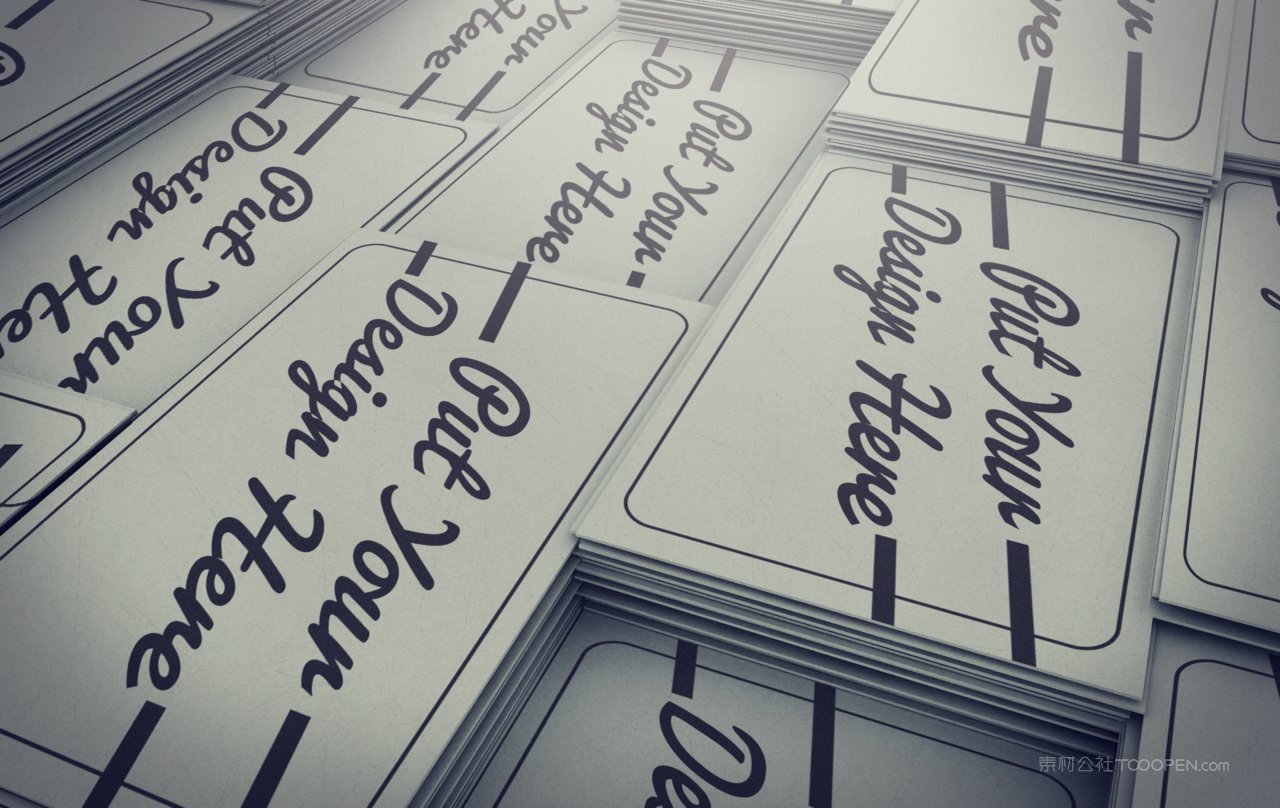 Your
Here
Put Your
Design Here
Put Your
Design Her
Put Your
Design Here
Put Your
Design Here
De
素材公社TOOOPEN.com